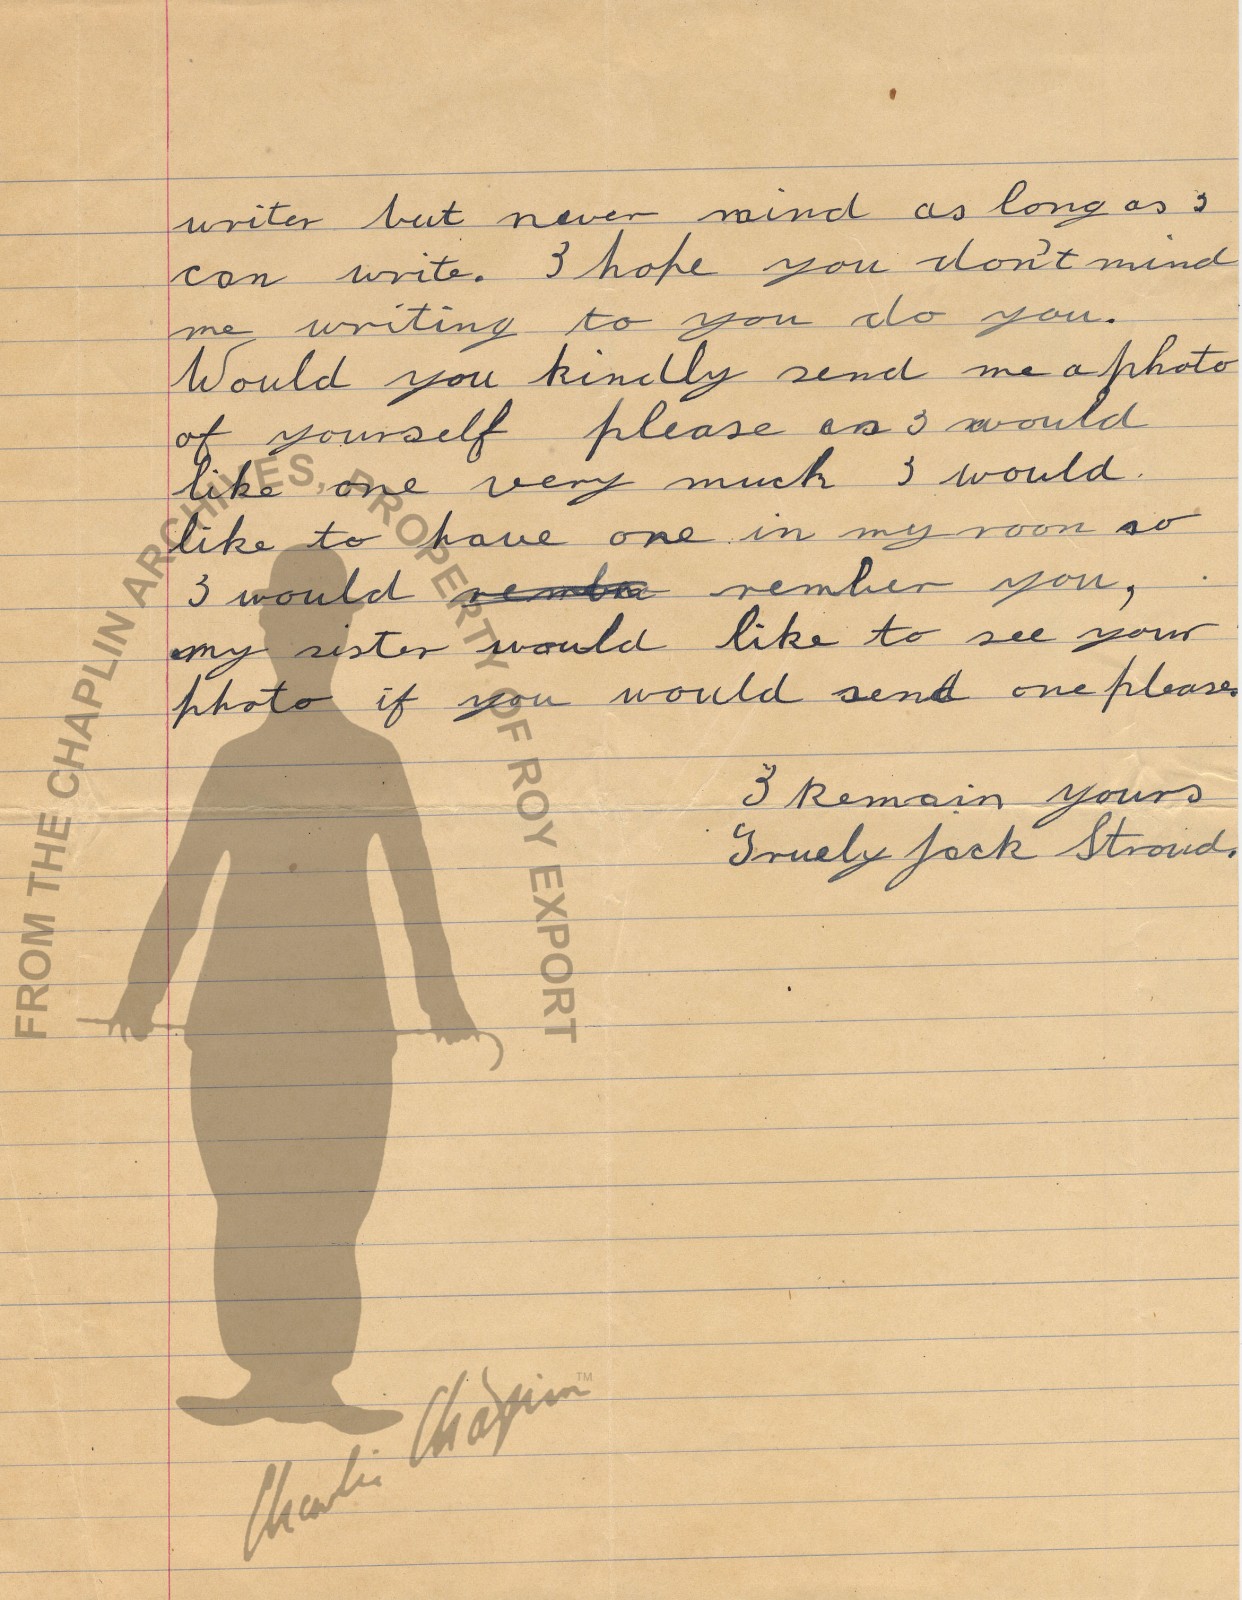 writer but never mind as long as I
can write. I hope you don't mind
me writing to you do you.
Would you kindly send me a photo
of yourself please as I would
like one very much I would
like to have one in my room so
I would remba rember you,
my sister would like to see your
photo if you would send one please.
I Remain yours
Truely Jack Stroud.
FROM THE CHAPLIN ARCHIVES, PROPERTY OF ROY EXPORT
Charlie Chaplin™